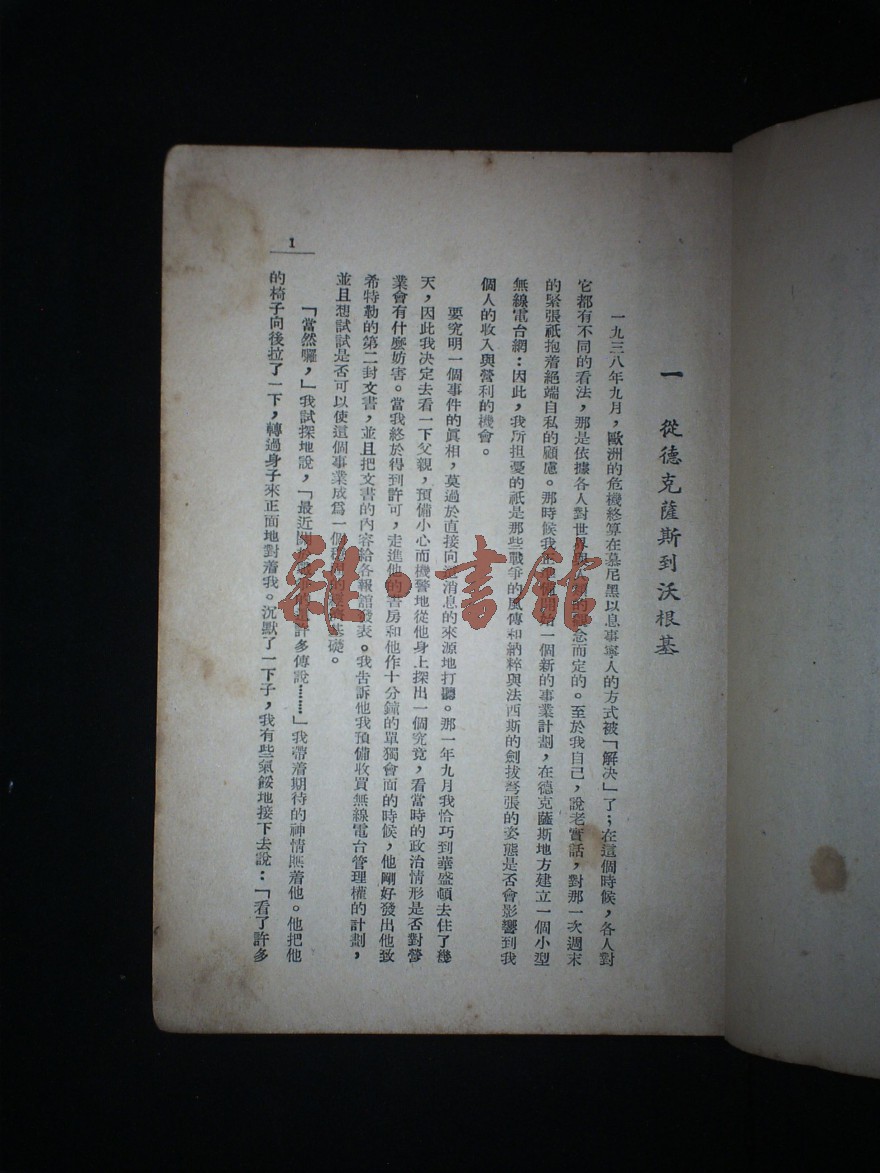 一 從德克薩斯到沃根基
一九三八年九月，歐洲的危機終算在慕尼黑以息事寧人的方式被「解决」了；在這個時候，各人對
它都有不同的看法，那是依據各人對世界 念而定的。至於我自己，說老實話，對那一次週末
的緊張祇抱着絕端自私的顧慮。那時候我正 開始一個新的事業計劃，在德克薩斯地方建立一個小型
無線電台網：因此，我所担憂的祇是那些戰爭的風傳和納粹與法西斯的劍拔弩張的姿態是否會影響到我
個人的收入與營利的機會。
要究明一個事件的眞相，莫過於直接向 消息的來源地打聽。那一年九月我恰巧到華盛頓去住了幾
天，因此我决定去看一下父親，預備小心而機警地從他身上探出一個究竟，看當時的政治情形是否對營
業會有什麼妨害。當我終於得到許可，走進他的書房和他作十分鐘的單獨會面的時候，他剛好發出他致
希特勒的第二封文書，並且把文書的內容給各報館發表。我告訴他我預備收買無線電台管理權的計劃，
並且想試試是否可以使這個事業成爲一個 基礎。
「當然囉，」我試探地說，「最近 許多傳說……」我帶着期待的神情瞧着他。他把他
的椅子向後拉了一下，轉過身子來正面地對着我。沉默了一下子，我有些氣餒地接下去說：「看了許多
1
雜·書館